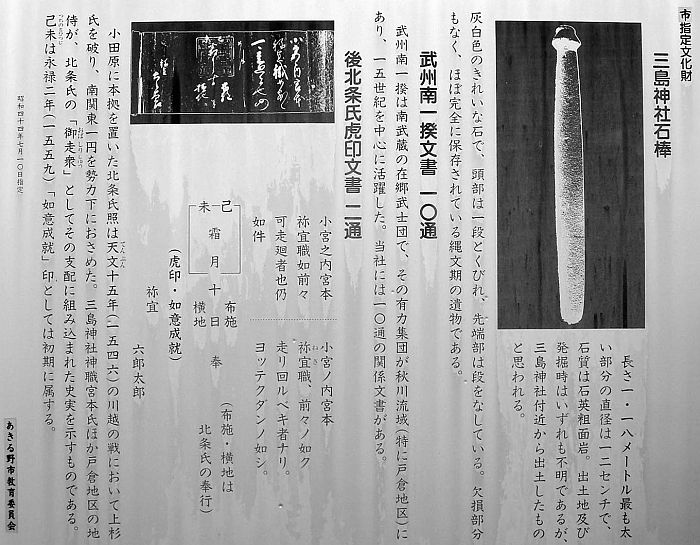 市指定文化財
三島神社石棒
長さ一・一八メートル最も太
い部分の直径は一二センチで、
石質は石英粗面岩。出土地及び
発掘時はいずれも不明であるが、
三島神社付近から出土したもの
と思われる。
灰白色のきれいな石で、頭部は一段とくびれ、先端部は段をなしている。欠損部分
もなく、ほぼ完全に保存されている縄文期の遺物である。
武州南一揆文書 一〇通
武州南一揆は南武蔵の在郷武士団で、その有力集団が秋川流域(特に戸倉地区)に
あり、一五世紀を中心に活躍した。当社には一〇通の関係文書がある。
後北条氏虎印文書 二通
小宮之内宮本
祢宜職如前々
可走廻者也仍
如件
己
未
霜月十日 奉
布施
横地
(虎印・如意成就)
祢宜
六郎太郎
小宮ノ内宮本
祢宜職、前々ノ如ク
ねぎ
走リ回ルベキ者ナリ。
ヨッテクダンノ如シ。
(布施・横地は
北条氏の奉行)
小田原に本拠を置いた北条氏照は天文十五年(一五四六)の川越の戦において上杉
てんぶん
氏を破り、南関東一円を勢力下におさめた。三島神社神職宮本氏ほか戸倉地区の地
侍が、北条氏の「御走衆」としてその支配に組み込まれた史実を示すものである。
己未は永禄二年(一五五九)「如意成就」印としては初期に属する。
昭和四十四年七月一〇日指定
あきる野市教育委員会